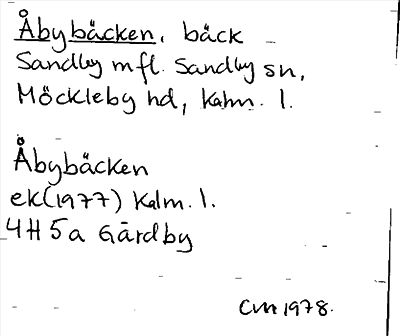 Åbybäcken, bäck
Sandby mfl. Sandby sn,
Möckleby hd, Kalm. l.
Åbybäcken
ek(1977) Kalm. l.
4H5a Gårdby
CM 1978.